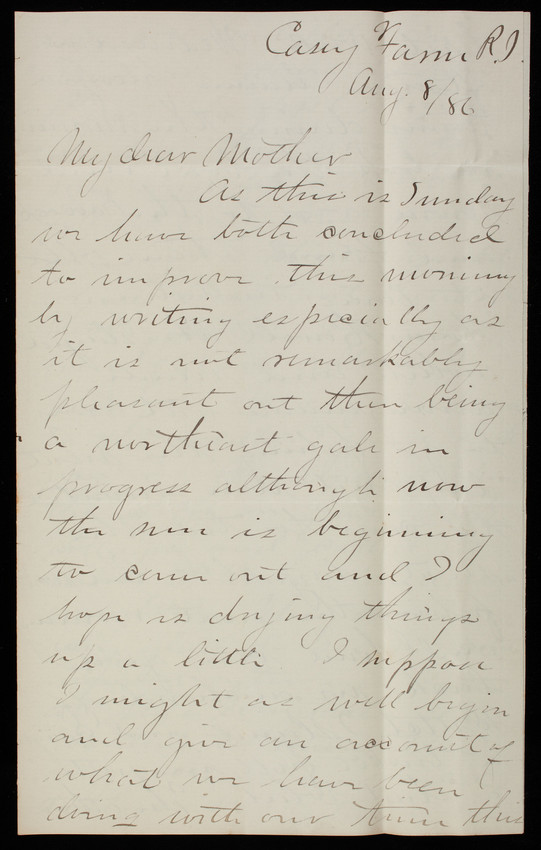 Casey Farm R.I.
Aug. 8/86
My dear Mother
As this is Sunday
we have both concluded
to improve this morning
by writing especially as
it is not remarkably
pleasant out there being
a northeast gale in
progress although now
the sun is beginning
to come out and I
hope is drying things
up a little. I suppose
I might as well begin
and give an account of
what we have been
doing with our time this